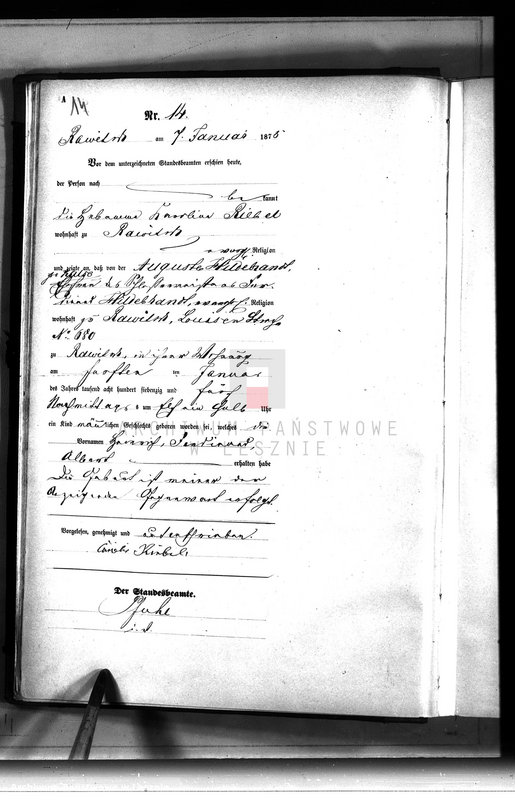 A
14
Nr. 14.
Rawitsch am 7. Januar 1875
Vor dem unterzeichneten Standesbeamten erschien heute,
der Person nach
be kannt
die Hebamme Karoline
wohnhaft zu Rawitsch
Religion
und zeigte an, daß von der Auguste Hildebrandt,
Hildebrandt, Religion
wohnhaft zu Rawitsch, Louisen
No 680
zu Rawitsch, in ihrer Wohnung
am fünften ten Januar
des Jahres tausend acht hundert siebenzig und fünf
Nachmittags um Elf ein halb Uhr
ein Kind männlichen Geschlechts geboren worden sei, welches die
Vornamen Heinrich, Ferdinand
Albert erhalten habe
Die Geburt ist meiner der
Anzeigenden Gegenwart erfolgt.
Vorgelesen, genehmigt und unterschrieben.
Der Standesbeamte.
ARCHIWUM PAŃSTWOWE
W LESZNIE